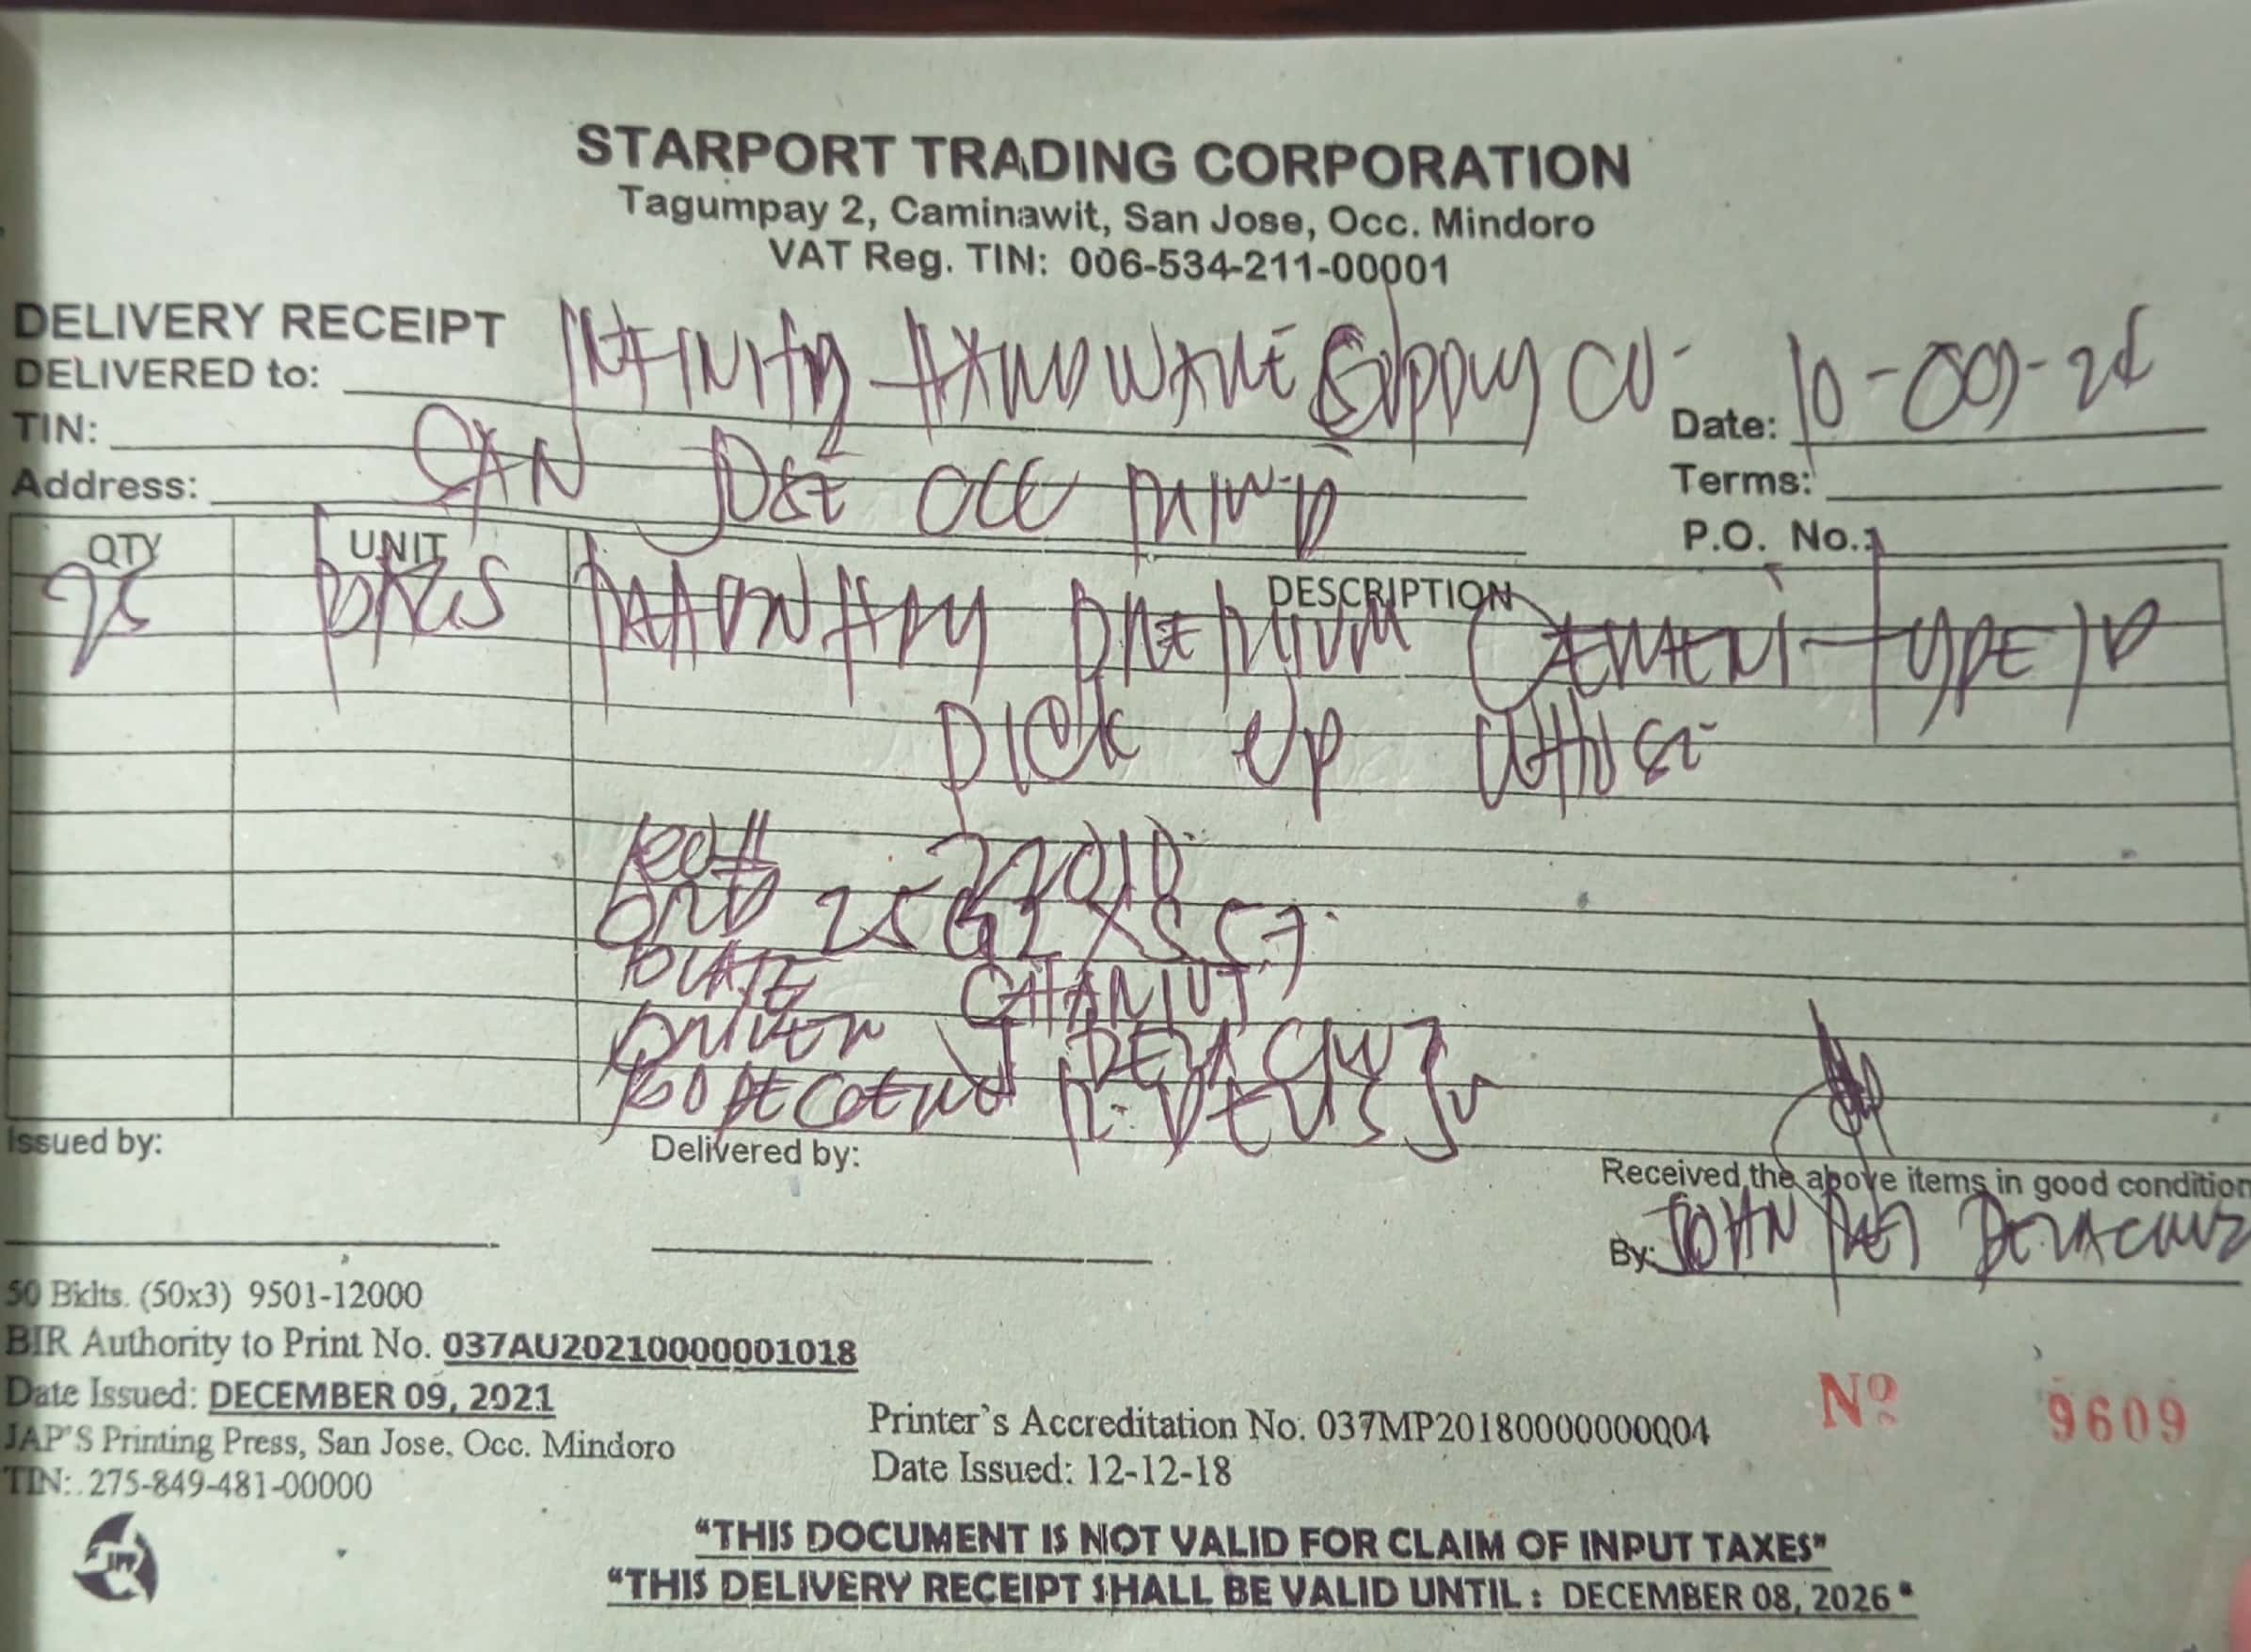 STARPORT TRADING CORPORATION
Tagumpay 2, Caminawit, San Jose, Occ. Mindoro
VAT Reg. TIN: 006-534-211-00001
DELIVERY RECEIPT
DELIVERED to: INFINITY HARDWARE Supply CO.
TIN:
Date: 10-09-25
Address: SAN JOSE OCC
Terms:
P.O. No.:
QTY UNIT DESCRIPTION
BAGS PREMIUM CEMENT TYPE
PICK UP
22010
PLATE
DRIVER J DELA CRUZ
Issued by:
Delivered by:
Received the above items in good condition
By: JOHN REY DELACRUZ
50 Bklts. (50x3) 9501-12000
BIR Authority to Print No. 037AU20210000001018
Date Issued: DECEMBER 09, 2021
JAP'S Printing Press, San Jose, Occ. Mindoro
TIN: 275-849-481-00000
Printer's Accreditation No. 037MP20180000000004
Date Issued: 12-12-18
Nº 9609
"THIS DOCUMENT IS NOT VALID FOR CLAIM OF INPUT TAXES"
"THIS DELIVERY RECEIPT SHALL BE VALID UNTIL : DECEMBER 08, 2026"